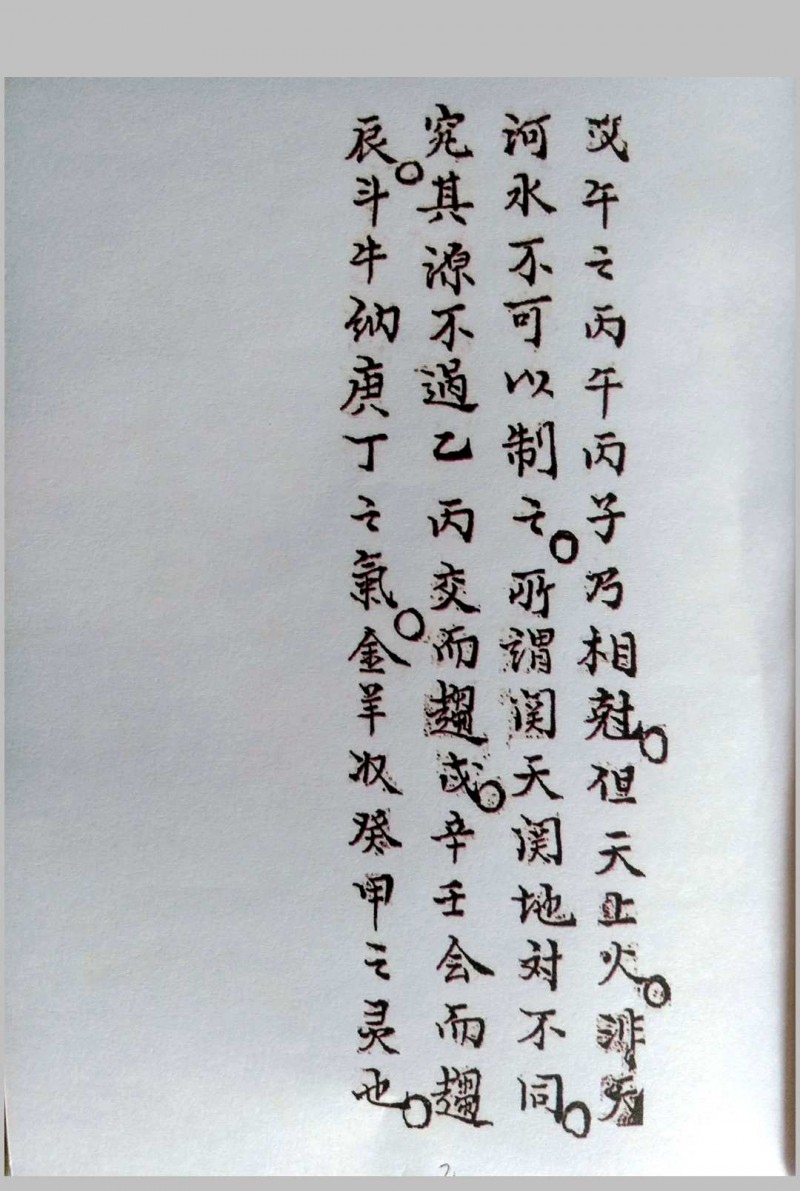 戊午之丙午丙子乃相尅。但天上火。非天
河水不可以制之。所謂関天関地対不同。
究其源不過乙丙交而趨戌。辛壬会而趨
辰。斗牛納庚丁之氣。金羊收癸甲之灵也。